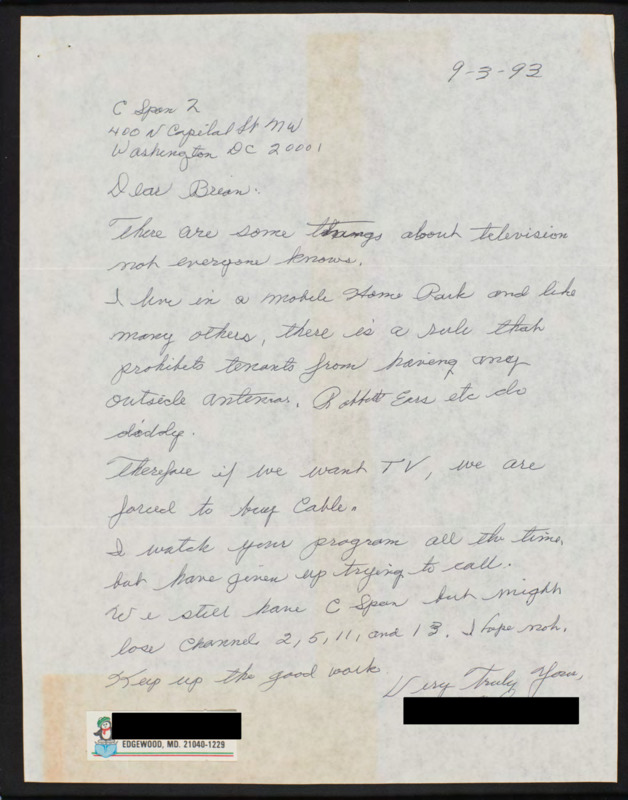 9-3-93
C Span 2
400 N Capital St NW
Washington DC 20001
Dear Brian:
There are some things about television
not everyone knows.
I live in a mobile Home Park and like
many others, there is a rule that
prohibits tenants from having any
outside antennas. Rabbit Ears etc do
diddly.
Therefore if we want TV, we are
forced to buy Cable.
I watch your program all the time,
but have given up trying to call.
We still have C Span but might
lose channels 2, 5, 11, and 13. I hope not.
Keep up the good work
Very Truly Yours,
EDGEWOOD, MD. 21040-1229